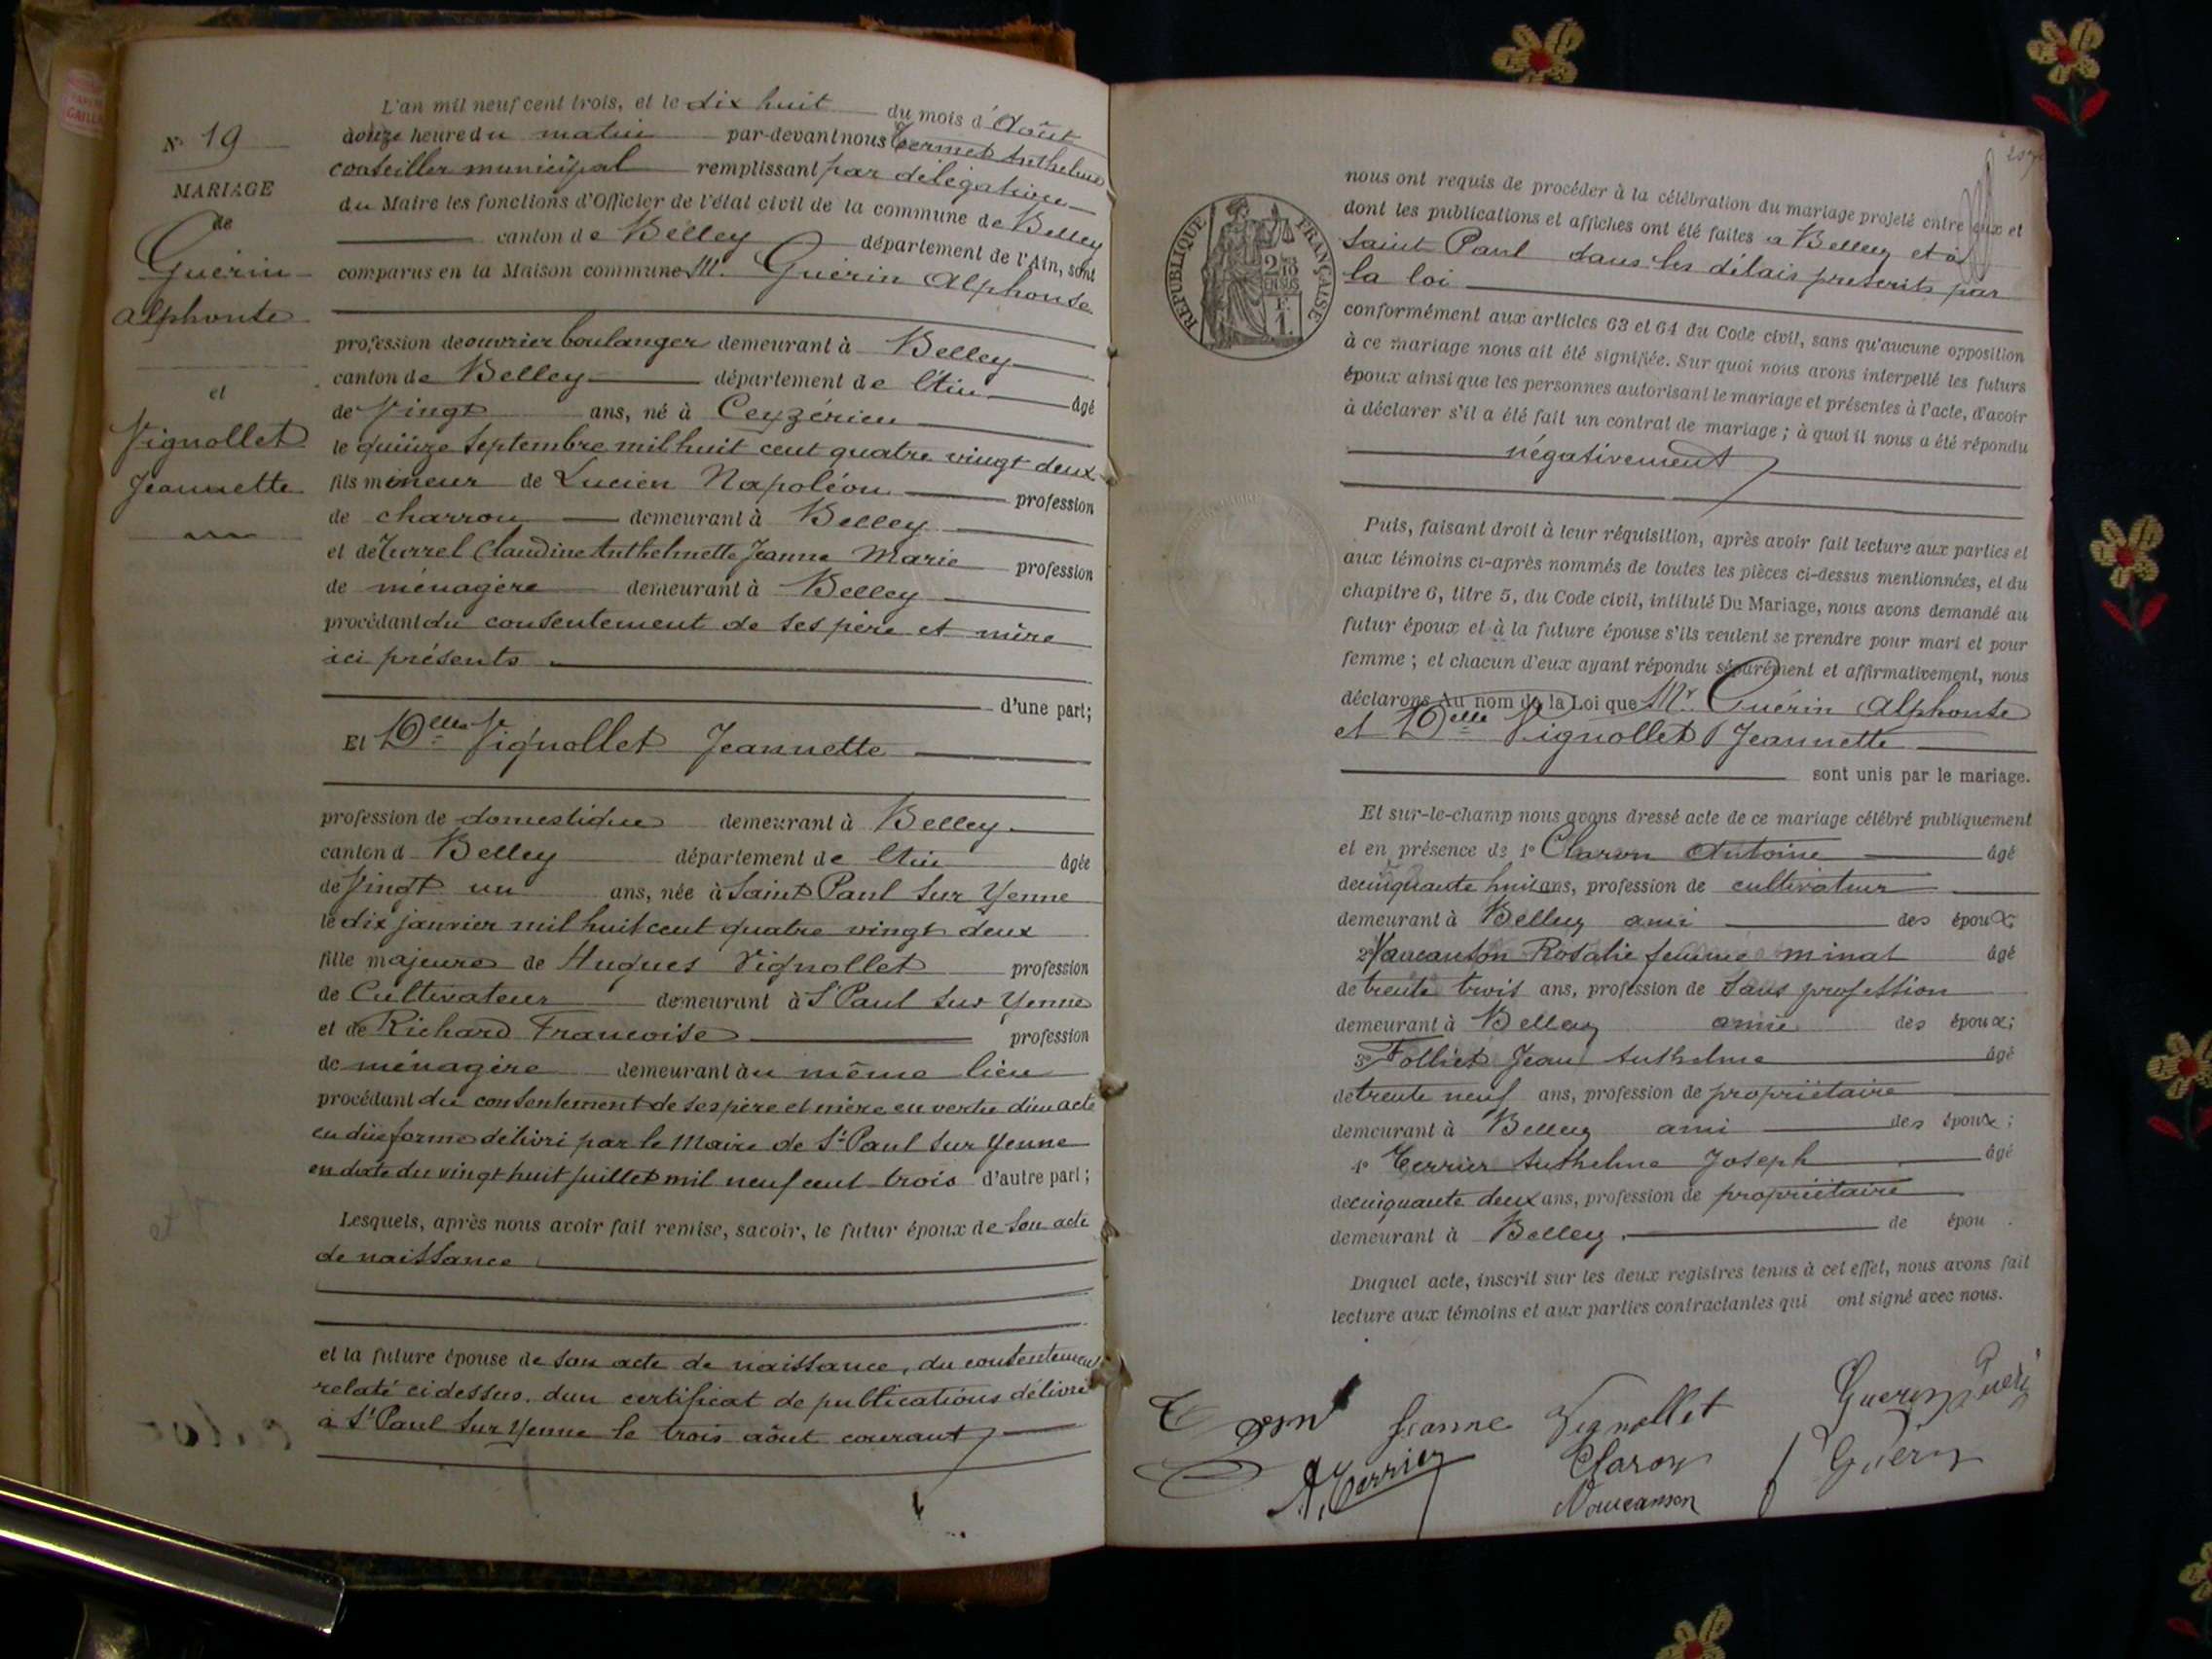 L'an mil neuf cent trois, et le dix huit du mois d'Août
N° 19
douze heure du matin par-devant nous Termet Anthelme
conseiller municipal remplissant par délégation
MARIAGE
du Maire les fonctions d'Officier de l'état civil de la commune de Belley
de
canton de Belley département de l'Ain, sont
Guérin
comparus en la Maison commune M. Guérin Alphonse
Alphonse
profession de ouvrier boulanger demeurant à Belley
canton de Belley département de l'Ain âgé
et
de Vingt ans, né à Ceyzérieu
Vignollet
le quinze Septembre mil huit cent quatre vingt deux
Jeannette
fils mineur de Lucien Napoléon profession
de charron demeurant à Belley
et de Turrel Claudine Anthelmette Jeanne Marie profession
de ménagère demeurant à Belley
procédant du consentement de ses père et mère
ici présents
d'une part;
Et Delle Vignollet Jeannette
profession de domestique demeurant à Belley
canton d Belley département de l'Ain âgée
de Vingt un ans, née à Saint Paul sur Yenne
le dix janvier mil huit cent quatre vingt deux
fille majeure de Hugues Vignollet profession
de Cultivateur demeurant à St Paul sur Yenne
et de Richard Francoise profession
de ménagère demeurant au même lieu
procédant du consentement de ses père et mère en vertu d'un acte
en due forme délivré par le Maire de St Paul sur Yenne
en date du vingt huit juillet mil neuf cent trois d'autre part;
Lesquels, après nous avoir fait remise, savoir, le futur époux de son acte
de naissance
et la future épouse de son acte de naissance, du consentement
relaté ci dessus, d'un certificat de publications délivré
à St Paul sur Yenne le trois août courant
nous ont requis de procéder à la célébration du mariage projeté entre eux et
dont les publications et affiches ont été faites à Belley et à
Saint Paul dans les délais prescrits par
la loi
RÉPUBLIQUE FRANÇAISE
2/10 EN SUS
F. 1.
conformément aux articles 63 et 64 du Code civil, sans qu'aucune opposition
à ce mariage nous ait été signifiée. Sur quoi nous avons interpellé les futurs
époux ainsi que les personnes autorisant le mariage et présentes à l'acte, d'avoir
à déclarer s'il a été fait un contrat de mariage; à quoi il nous a été répondu
négativement
Puis, faisant droit à leur réquisition, après avoir fait lecture aux parties et
aux témoins ci-après nommés de toutes les pièces ci-dessus mentionnées, et du
chapitre 6, titre 5, du Code civil, intitulé Du Mariage, nous avons demandé au
futur époux et à la future épouse s'ils veulent se prendre pour mari et pour
femme; et chacun d'eux ayant répondu séparément et affirmativement, nous
déclarons Au nom de la Loi que Mr Guérin Alphonse
et Delle Vignollet Jeannette
sont unis par le mariage.
Et sur-le-champ nous avons dressé acte de ce mariage célébré publiquement
et en présence de 1° Claron Antoine âgé
de cinquante huit ans, profession de cultivateur
demeurant à Belley ami des époux;
2° Vaucanson Rosalie femme Minat âgé
de trente trois ans, profession de sans profession
demeurant à Belley amie des époux;
3° Folliet Jean Anthelme âgé
de trente neuf ans, profession de propriétaire
demeurant à Belley ami des époux;
4° Terrier Anthelme Joseph âgé
de cinquante deux ans, profession de propriétaire
demeurant à Belley. de épou .
Duquel acte, inscrit sur les deux registres tenus à cet effet, nous avons fait
lecture aux témoins et aux parties contractantes qui ont signé avec nous.
Jeanne Vignollet Guerin
A. Terrier Claron Guérin
Vaucanson